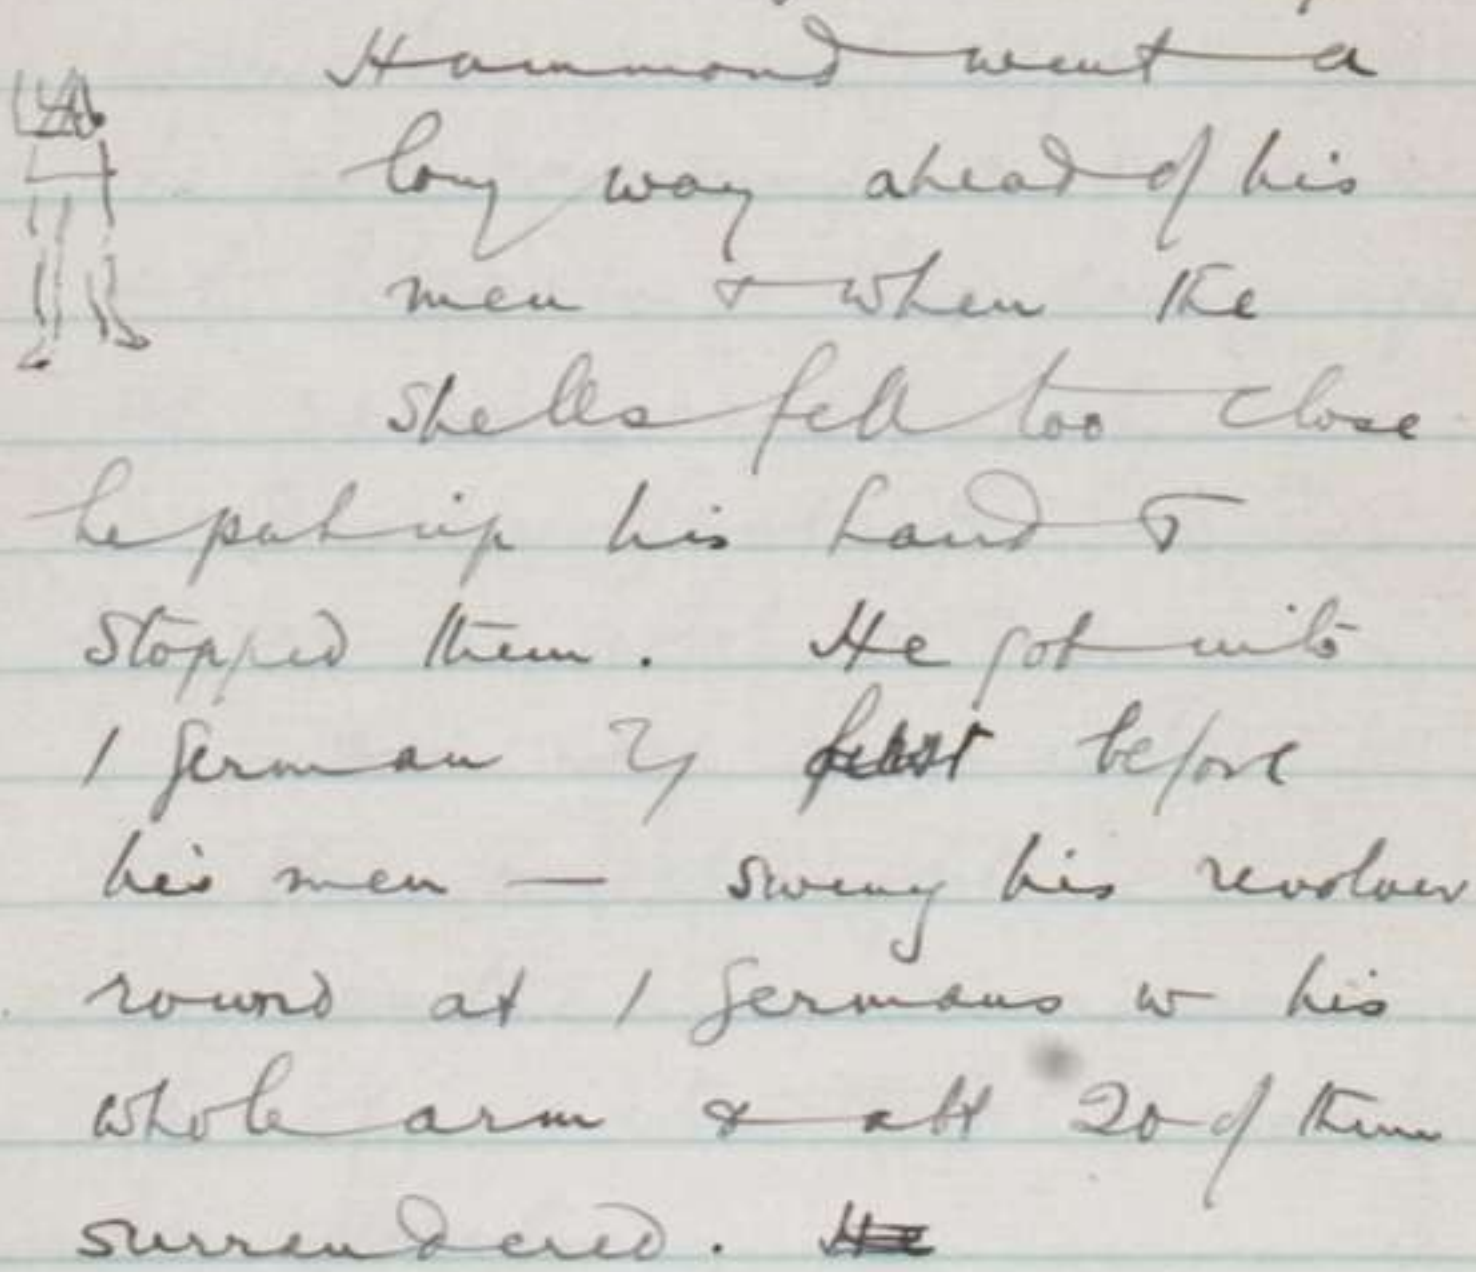 Hammond went a
long way ahead of his
men & when the
shells fell too close
he put up his hand &
stopped them. He got into
/ German before
his men — swung his revolver
round at / Germans w his
whole arm & abt 20 of them
surrendered. He